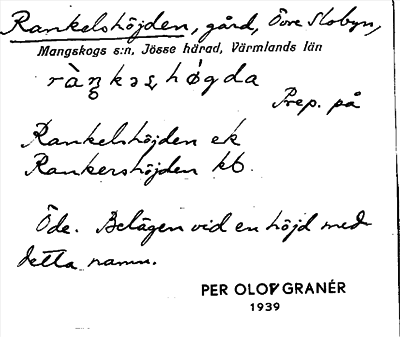 Rankelshöjden, gård, Övre Slobyn,
Mangskogs s:n, Jösse härad, Värmlands län
ràŋ̥kəʂhø̀gda
Prep. på
Rankelshöjden ek
Rankershöjden kb.
Öde. Belägen vid en höjd med
detta namn.
PER OLOF GRANÉR
1939